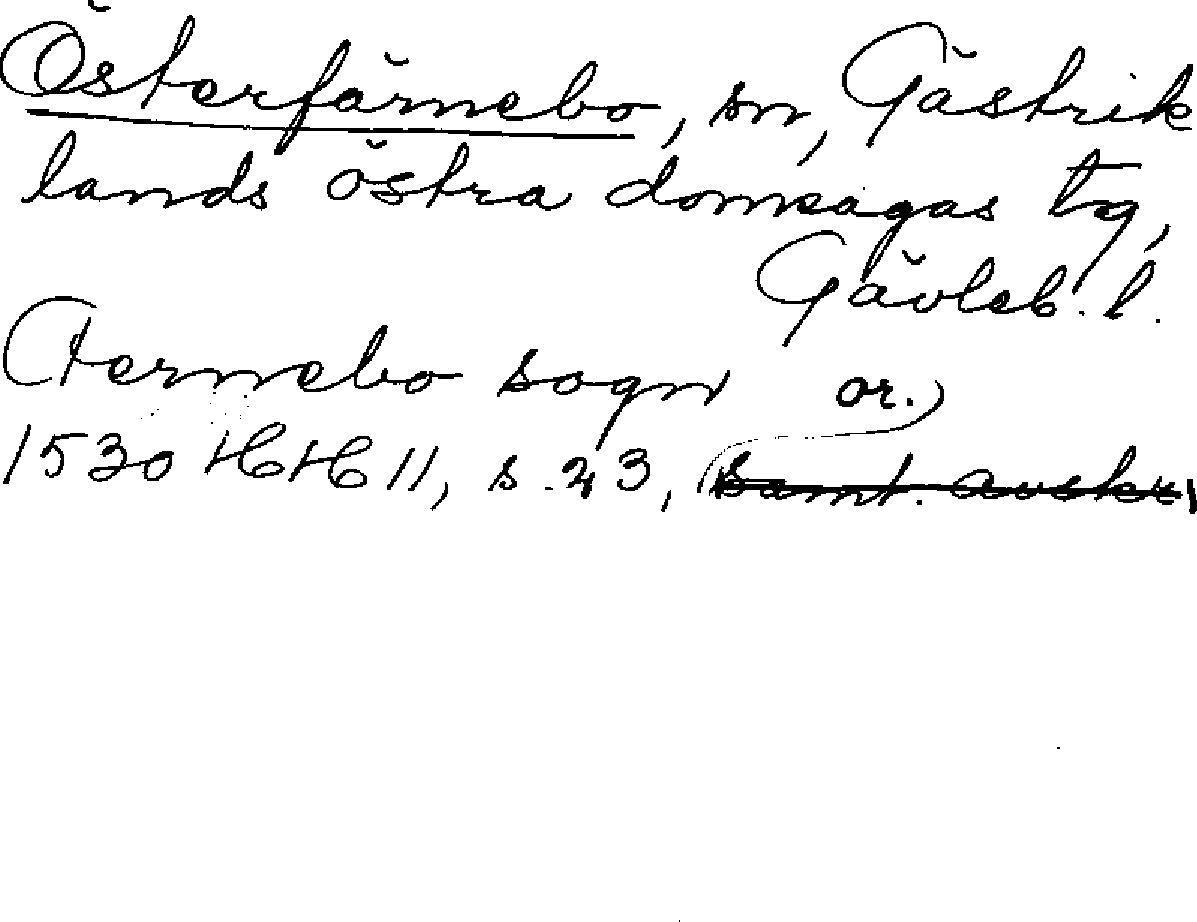 Österfärnebo, sn, Gästrik
lands östra domsagas tg,
Gävleb. l.
Fernebo sogn or.
1530 HH 11, s. 23, samt. avskr.